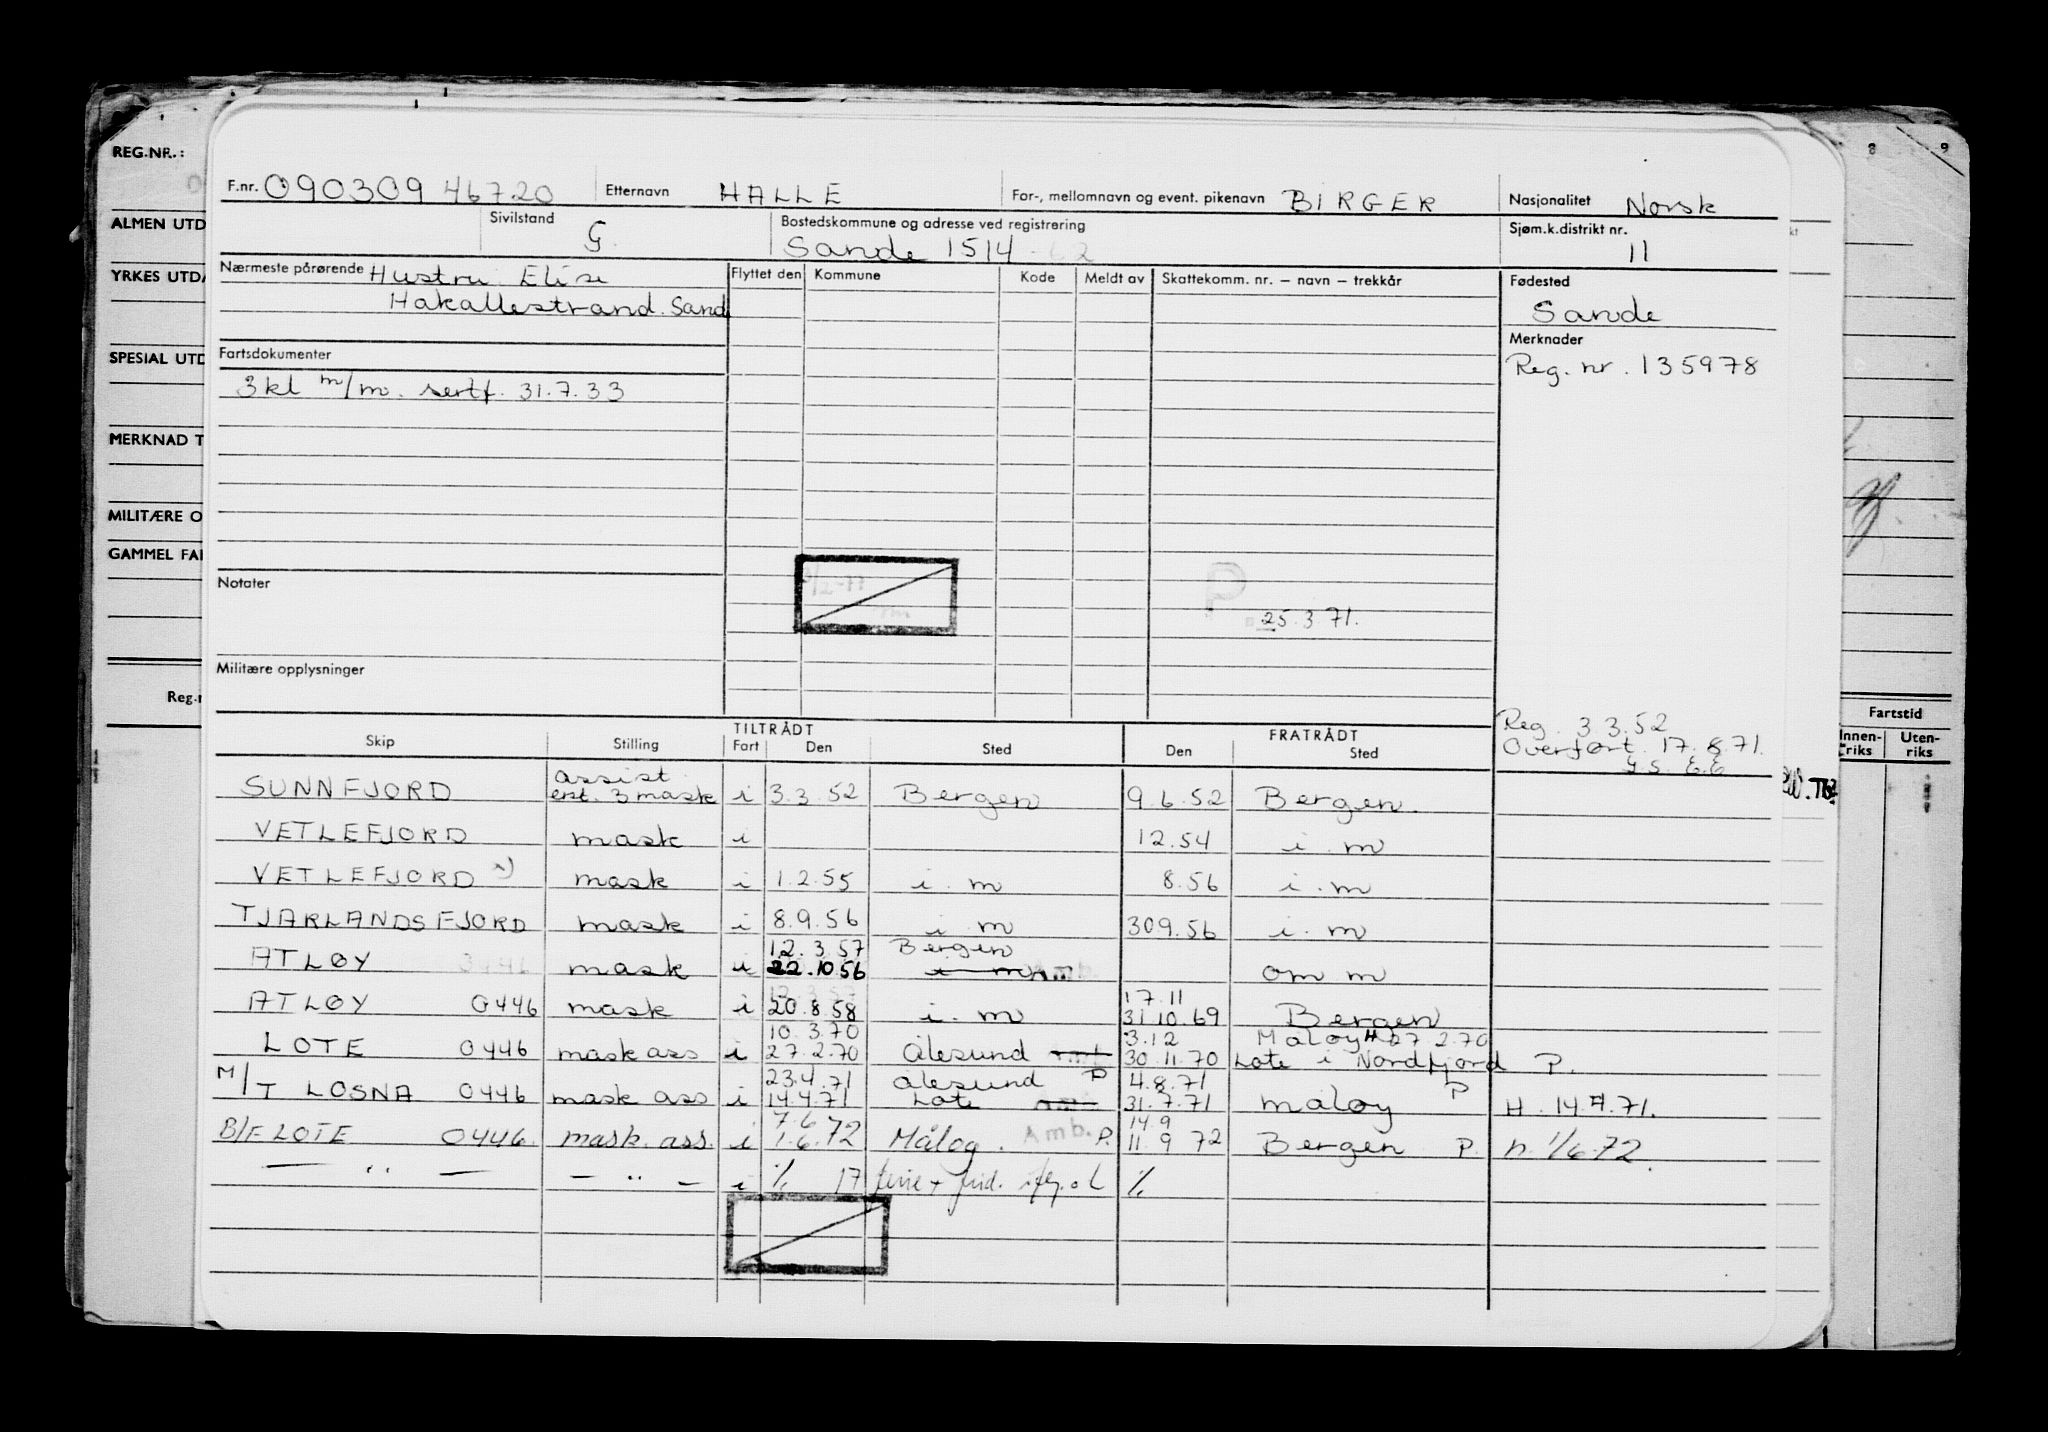 REG.NR.:
8 9
F.nr. 090309 46720 Etternavn HALLE For-, mellomnavn og event. pikenavn BIRGER Nasjonalitet Norsk
ALMEN UTD
Sivilstand G. Bostedskommune og adresse ved registrering Sande 1514 -62 Sjøm.k.distrikt nr. 11
YRKES UTDA
Nærmeste pårørende Hustru Elise Flyttet den Kommune Kode Meldt av Skattekomm. nr. – navn – trekkår Fødested
Hakallestrand. Sand Sande
SPESIAL UTD
Fartsdokumenter Merknader
3 kl m/m. sertf. 31.7.33 Reg. nr. 135978
MERKNAD T
MILITÆRE O
GAMMEL FAR
Notater
P
25.3.71.
Militære opplysninger
Reg.n
Reg. 3.3.52
Overført. 17.8.71.
Fartstid
Innen-riks Uten-riks
TILTRÅDT FRATRÅDT
Skip Stilling Fart Den Sted Den Sted
assist
SUNNFJORD erst. 3 mask i 3.3.52 Bergen 9.6.52 Bergen.
VETLEFJORD mask i 12.54 i. m
VETLEFJORD x) mask i 1.2.55 i. m 8.56 i. m
TJARLANDSFJORD mask i 8.9.56 i. m 309.56 i. m
12.3.57 Bergen
ATLØY 0446 mask i 22.10.56 i m om m
12.3.57 17.11
ATLØY 0446 mask i 20.8.58 i. m 31.10.69 Bergen
10.3.70 3.12 Måløy H 27 2.70
LOTE 0446 mask ass i 27.2.70 Ålesund Amb 30.11.70 Lote i Nordfjord P.
23.4.71 Ålesund P 4.8.71 P
M/T LOSNA 0446 mask ass i 14.4.71 Lote 31.7.71 Måløy H. 14.4.71.
7.6 14.9
B/F LOTE 0446. mask. ass. i 1.6.72 Måløy. Amb. P. 11.9 72 Bergen P. h. 1/6-72.
— " — — " — i % 17 ferie + frid. %